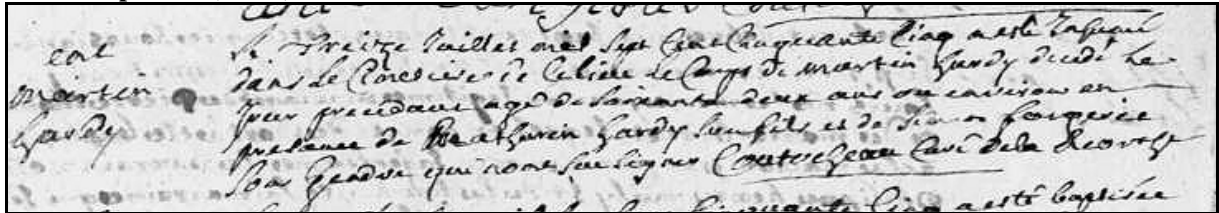 eat
martin
hardy
Le treize Juillet mil sept Cent Cinquante Cinq a esté Inhumé
dans le Cimetiere de Ce lieu le Corps de martin hardy decedé Le
jour precedant agé de soixante deux ans ou environ en
presence de Mathurin hardy son fils et de Simon forgerie
son gendre qui n'ont sue signer Coutocheau Curé de la
cinquante Cinq a esté baptisée